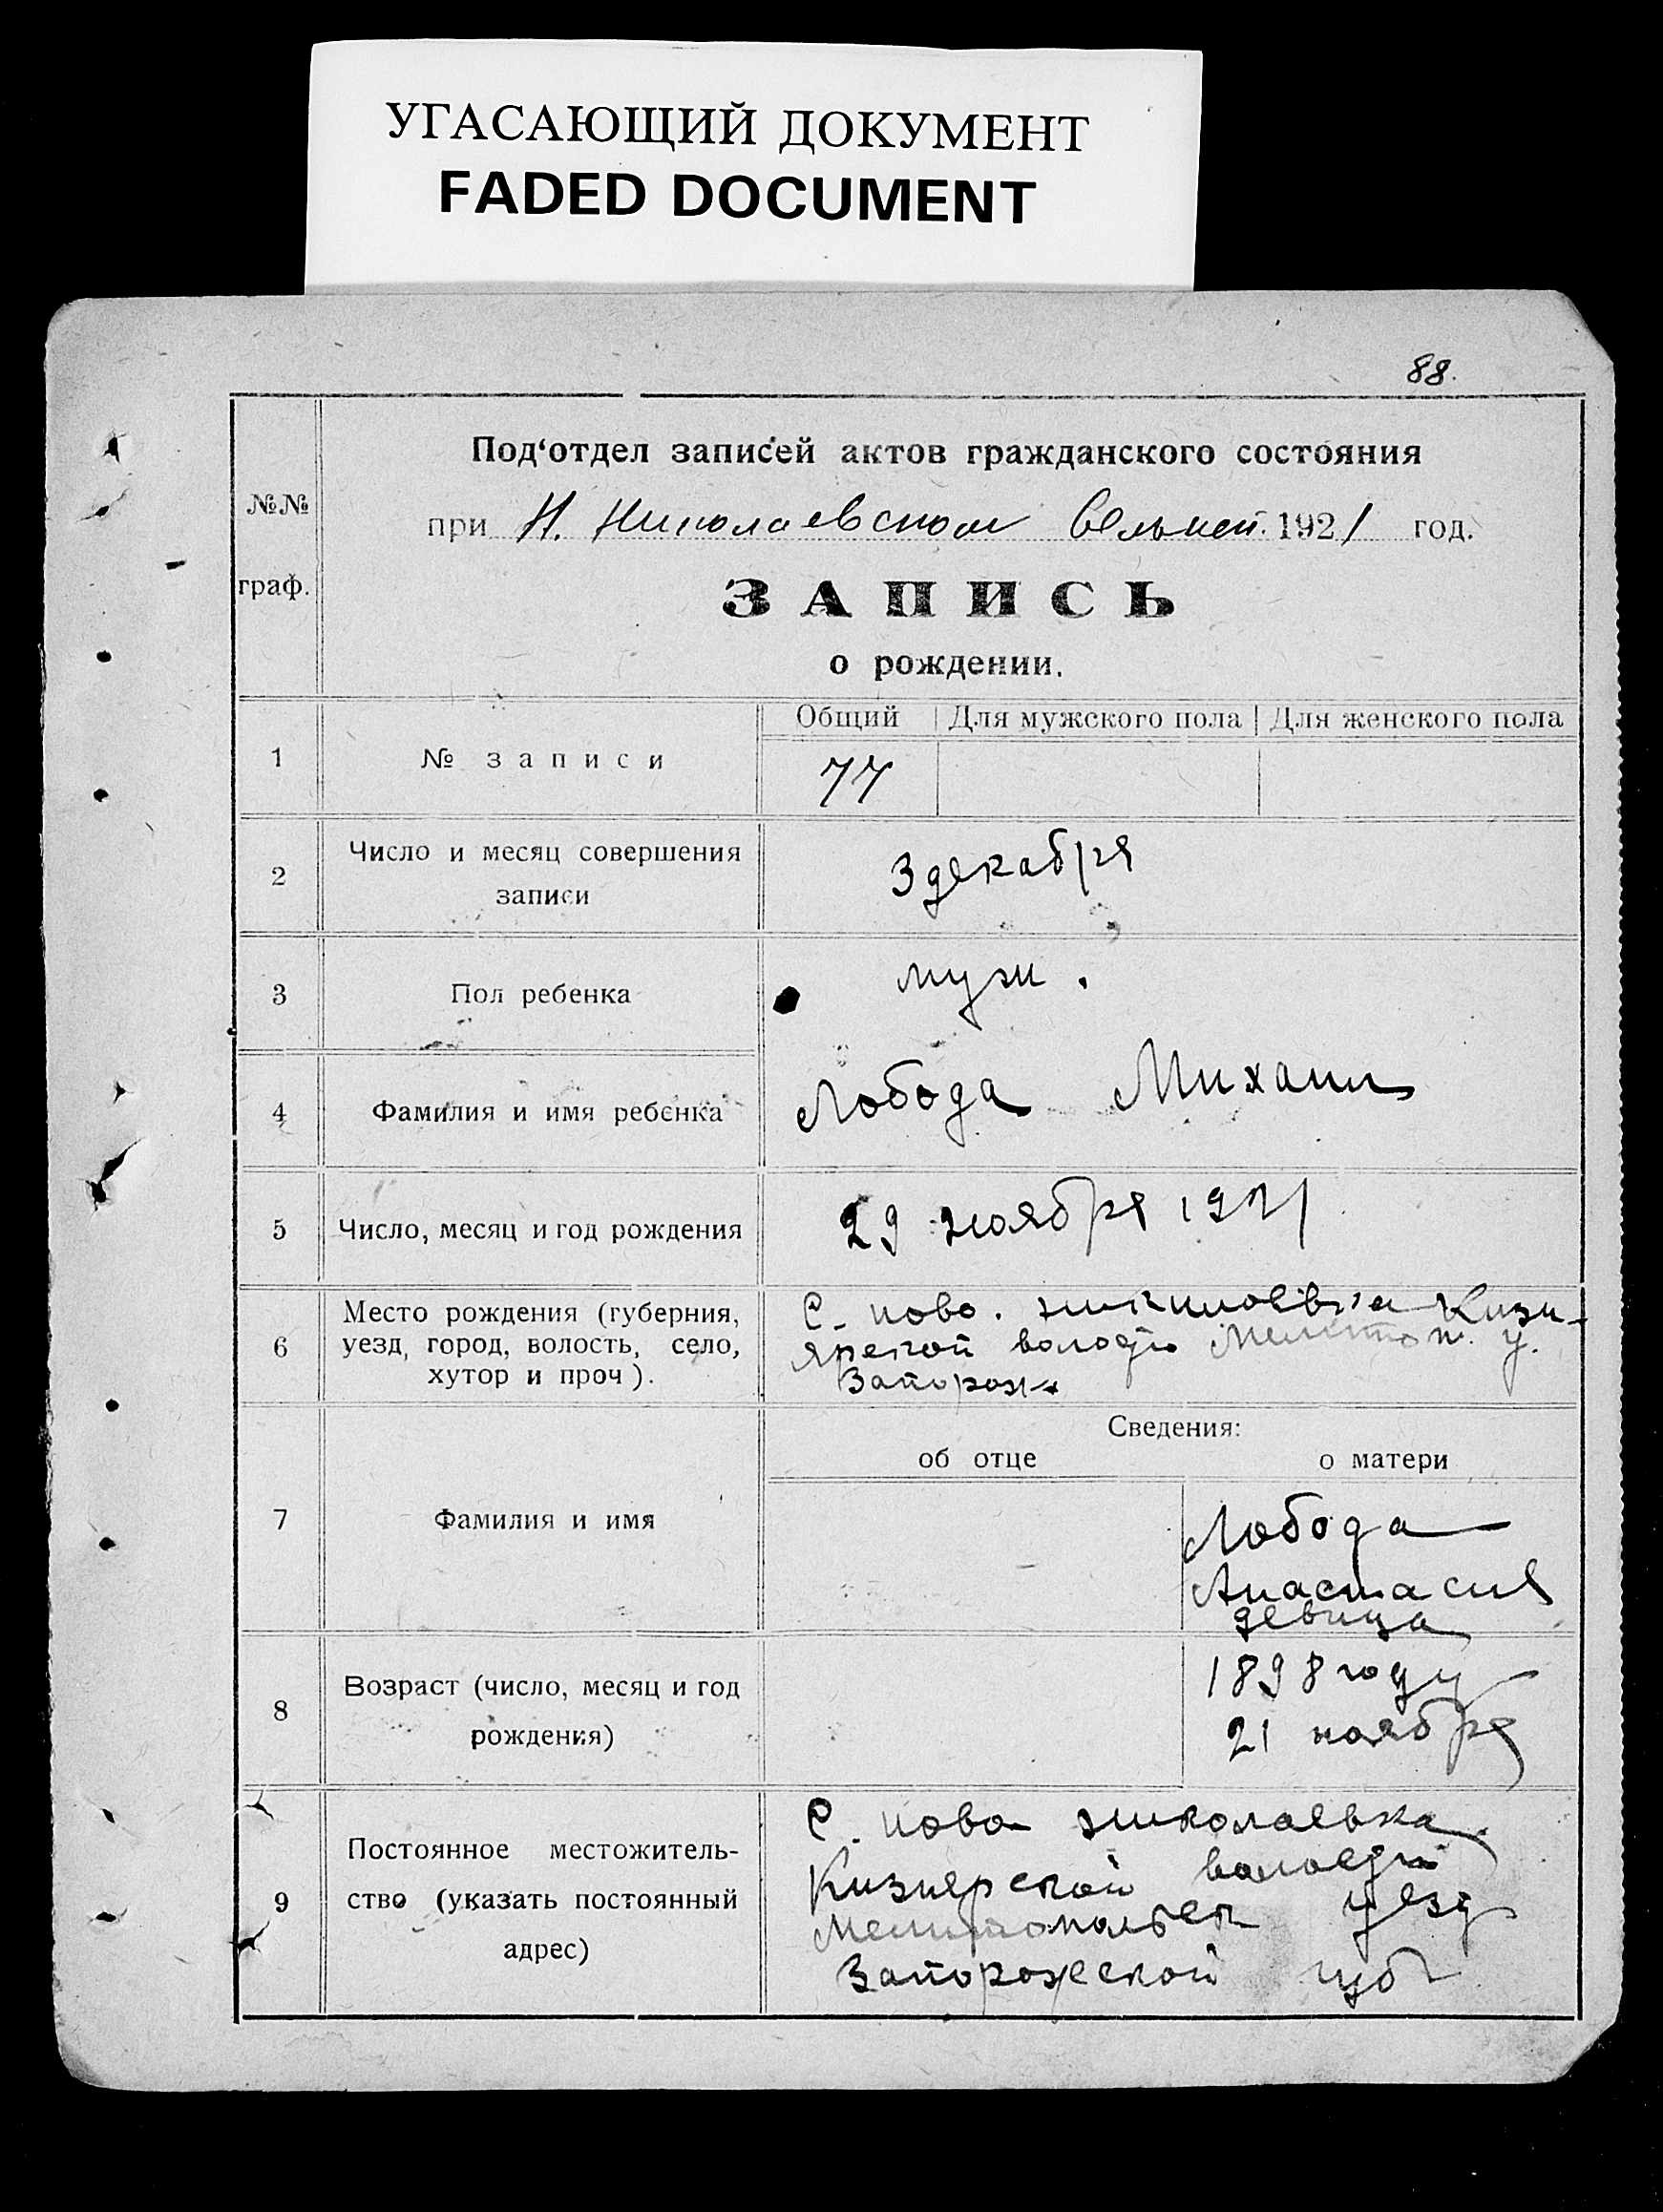 УГАСАЮЩИЙ ДОКУМЕНТ
FADED DOCUMENT
88.
№№
граф.
Под‘отдел записей актов гражданского состояния
при Н. Николаевском 1921 год.
ЗАПИСЬ
о рождении.
1 № записи
Общий Для мужского пола Для женского пола
77
2 Число и месяц совершения
записи
3 декабря
3 Пол ребенка
муж.
4 Фамилия и имя ребенка
Лобода Михаил
5 Число, месяц и год рождения
29 ноября 1921
6 Место рождения (губерния,
уезд, город, волость, село,
хутор и проч).
С. ново. Кизи-
ярской у.
Запорож
Сведения:
об отце о матери
7 Фамилия и имя
Лобода
Анастасия
девица
8 Возраст (число, месяц и год
рождения)
1898 году
21 ноября
9 Постоянное местожитель-
ство (указать постоянный
адрес)
С. ново николаевка
Кизиярской
уезд
Запорожской губ